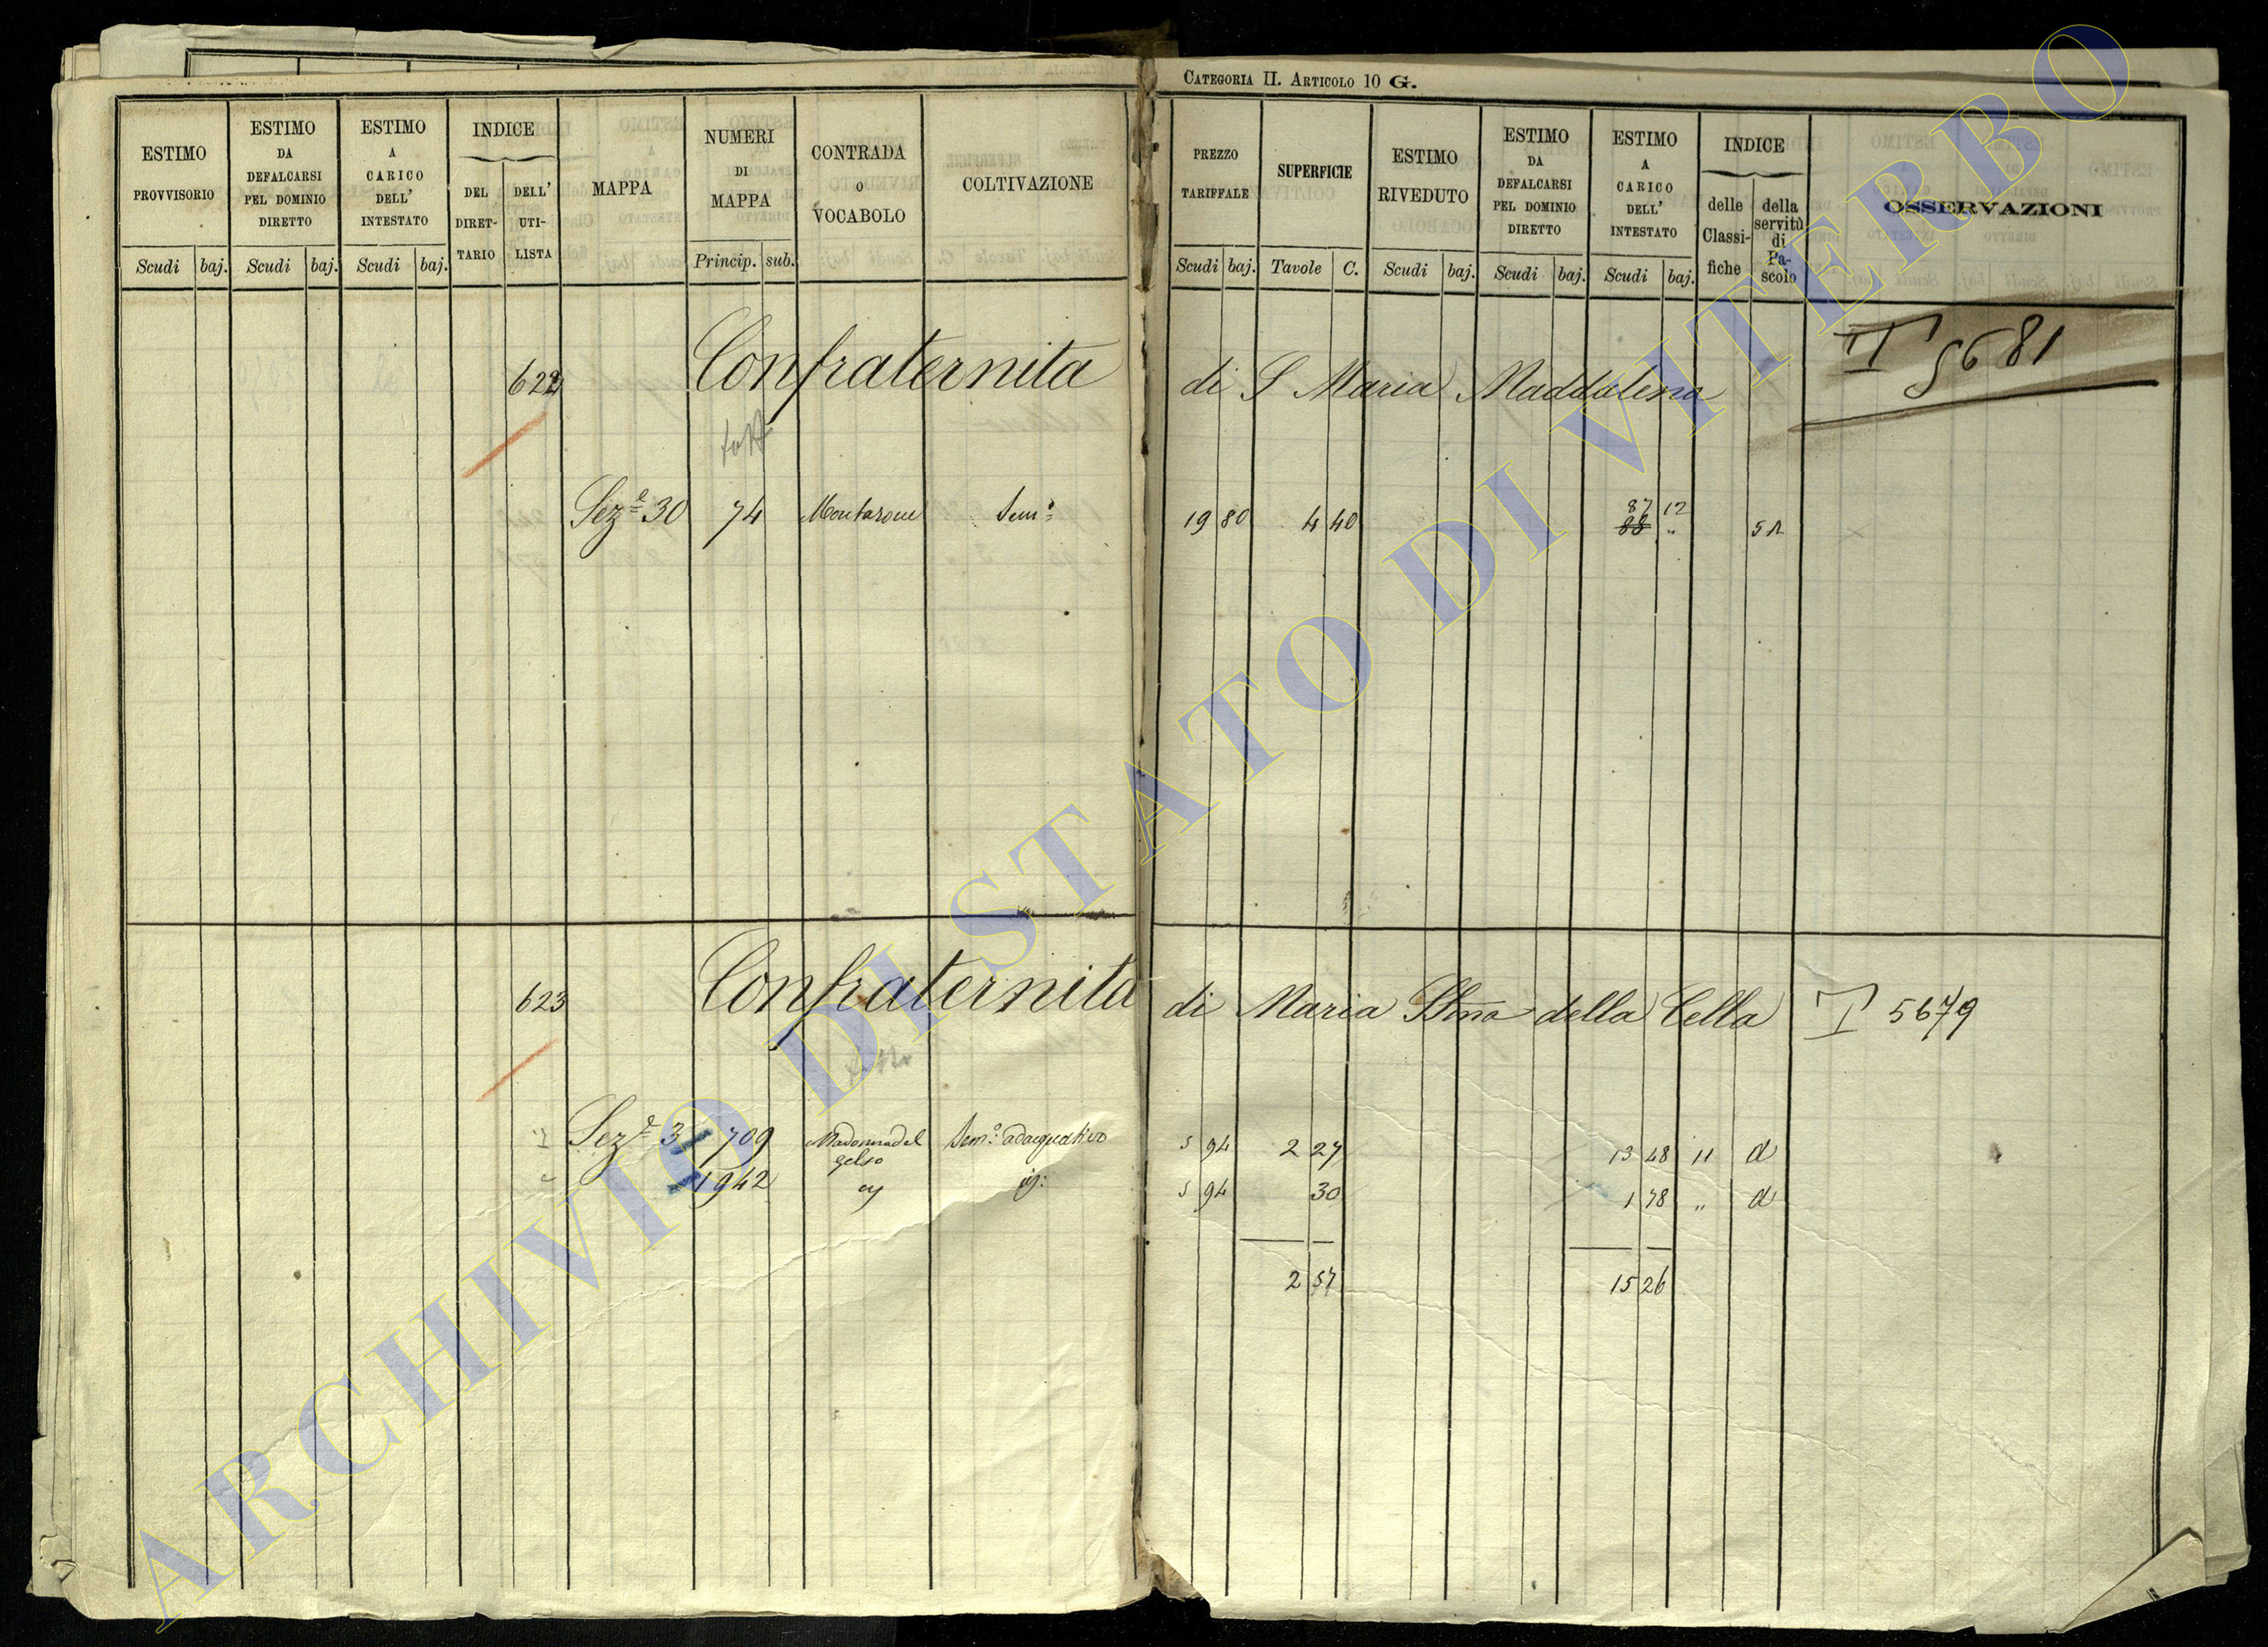 CATEGORIA II. ARTICOLO 10 G.
ESTIMO PROVVISORIO
Scudi baj.
ESTIMO DA DEFALCARSI PEL DOMINIO DIRETTO
Scudi baj.
ESTIMO A CARICO DELL' INTESTATO
Scudi baj.
INDICE
DEL DIRET-TARIO
DELL' UTI-LISTA
MAPPA
NUMERI DI MAPPA
Princip. sub.
CONTRADA O VOCABOLO
COLTIVAZIONE
PREZZO TARIFFALE
Scudi baj.
SUPERFICIE
Tavole C.
ESTIMO RIVEDUTO
Scudi baj.
ESTIMO DA DEFALCARSI PEL DOMINIO DIRETTO
Scudi baj.
ESTIMO A CARICO DELL' INTESTATO
Scudi baj.
INDICE
delle Classi-fiche
della servitù di Pa-scolo
OSSERVAZIONI
622 Confraternita di S Maria Maddalena T 5681
Sez.e 30 74 Montarone Sem.o 19 80 4 40 87 12
88 "
623 Confraternita di Maria SSma della Cella T 5679
Sez.e 31 709 Madonna del gelso Sem.o adacquativo 5 94 2 27 13 48 11 d
1942 5 94 30 1 78 " d
2 57 15 26
ARCHIVIO DI STATO DI VITERBO